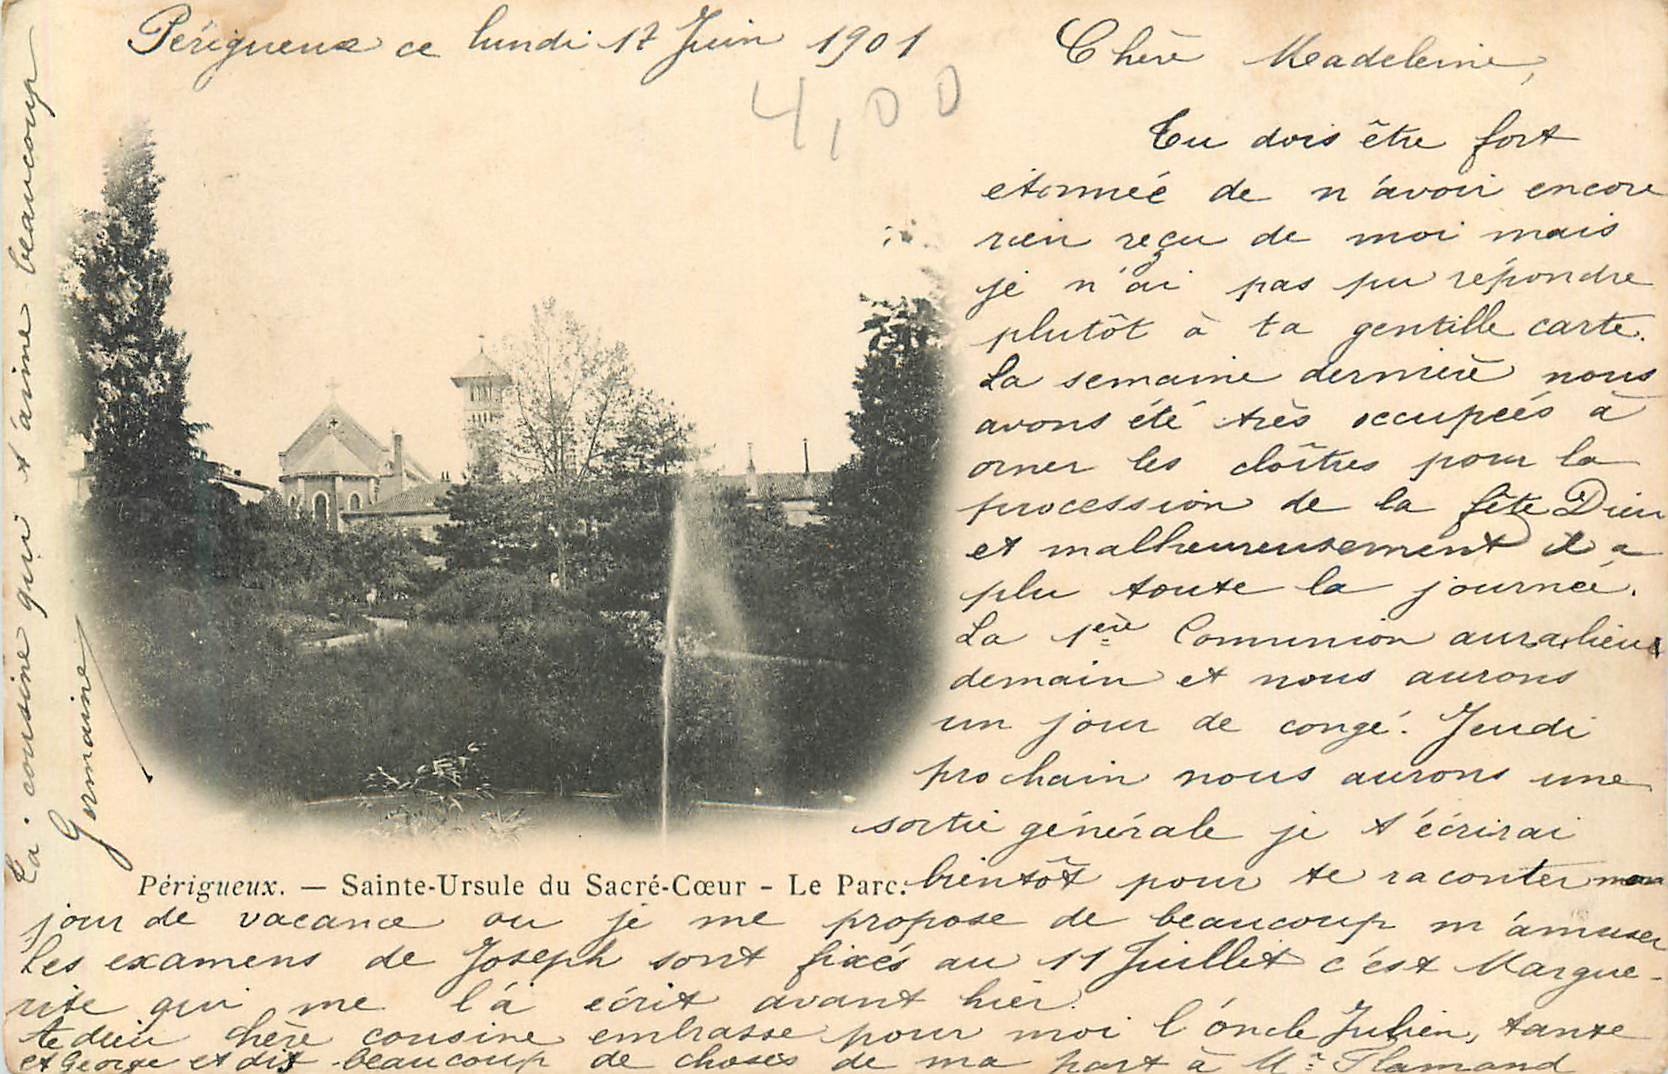 Périgueux ce lundi 17 Juin 1901
4,00
Chère Madeleine,
Tu dois être fort
étonnée de n'avoir encore
rien reçu de moi mais
je n'ai pas pu répondre
plutôt à ta gentille carte.
La semaine dernière nous
avons été très occupées à
orner les cloîtres pour la
procession de la fête Dieu
et malheureusement il a
plu toute la journée.
La 1ère Communion aura lieu
demain et nous aurons
un jour de congé. Jeudi
prochain nous aurons une
sortie générale je t'écrirai
bientôt pour te raconter mon
jour de vacance ou je me propose de beaucoup m'amuser
Les examens de Joseph sont fixés au 11 Juillet c'est Margue-
rite qui me l'a écrit avant hier.
Adieu chère cousine embrasse pour moi l'oncle Julien, tante
et George et dis beaucoup de choses de ma part à Mr Flamand
La cousine qui t'aime beaucoup
Germaine
Périgueux. — Sainte-Ursule du Sacré-Cœur - Le Parc.